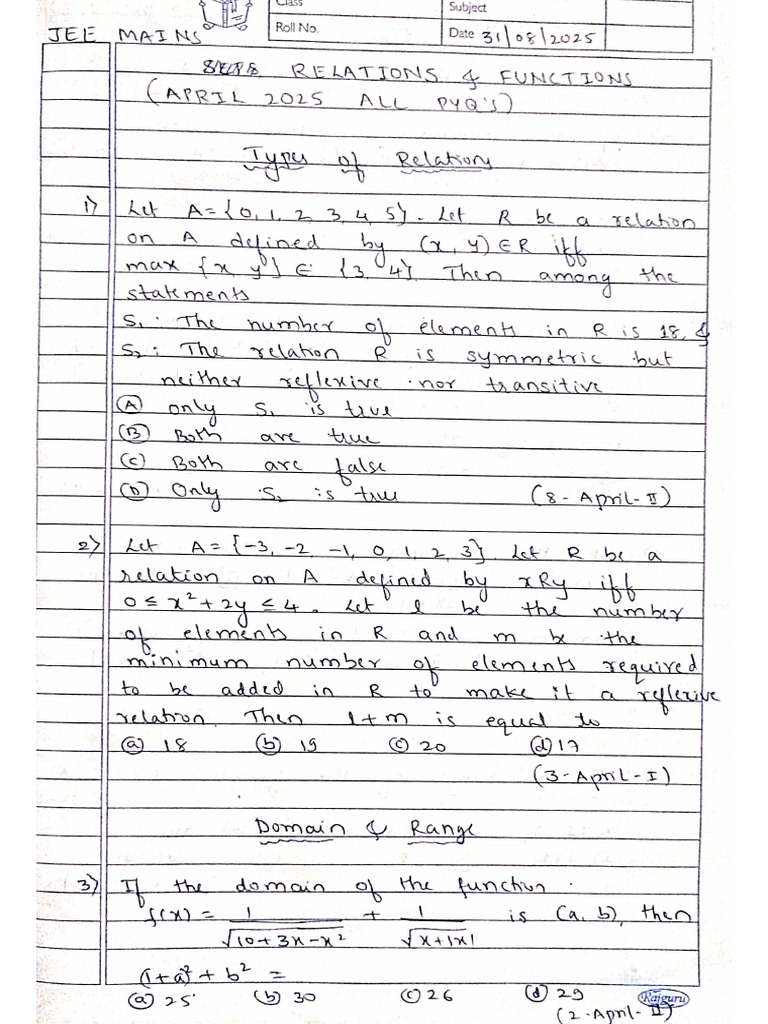 Class
Subject
Roll No.
Date 31/08/2025
JEE MAINS
RELATIONS & FUNCTIONS
(APRIL 2025 ALL PYQ's)
Types of Relations
1) Let A={0, 1, 2, 3, 4, 5}. Let R be a relation
on A defined by (x, y) ∈ R iff
max {x, y} ∈ {3, 4}. Then among the
statements
S₁: The number of elements in R is 18, &
S₂: The relation R is symmetric but
neither reflexive nor transitive
(A) only S₁ is true
(B) Both are true
(C) Both are false
(D) Only S₂ is true (8-April-II)
2) Let A={-3, -2, -1, 0, 1, 2, 3}. Let R be a
relation on A defined by xRy iff
0 ≤ x² + 2y ≤ 4. Let l be the number
of elements in R and m be the
minimum number of elements required
to be added in R to make it a reflexive
relation. Then l+m is equal to
(a) 18 (b) 19 (c) 20 (d) 17
(3-April-I)
Domain & Range
3) If the domain of the function
f(x) = 1/√(10+3x-x²) + 1/√(x+|x|) is (a, b), then
(1+a)² + b² =
(a) 25 (b) 30 (c) 26 (d) 29
Rajguru
(2-April-II)